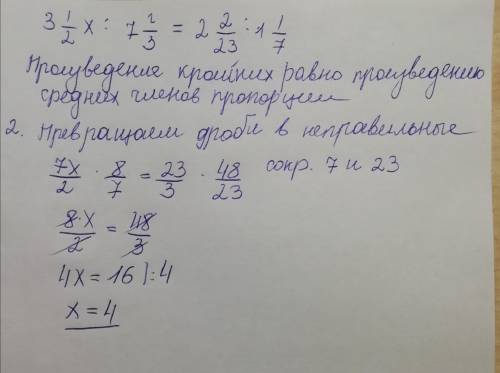 3 1/2 x : 7 2/3 = 2 2/23 : 1 1/7
Произведения крайних равно произведению
средних членов пропорции
2. Превращаем дроби в неправильные
7x/2 · 8/7 = 23/3 · 48/23 сокр. 7 и 23
8·x/2 = 48/3
4x = 16 |:4
x = 4